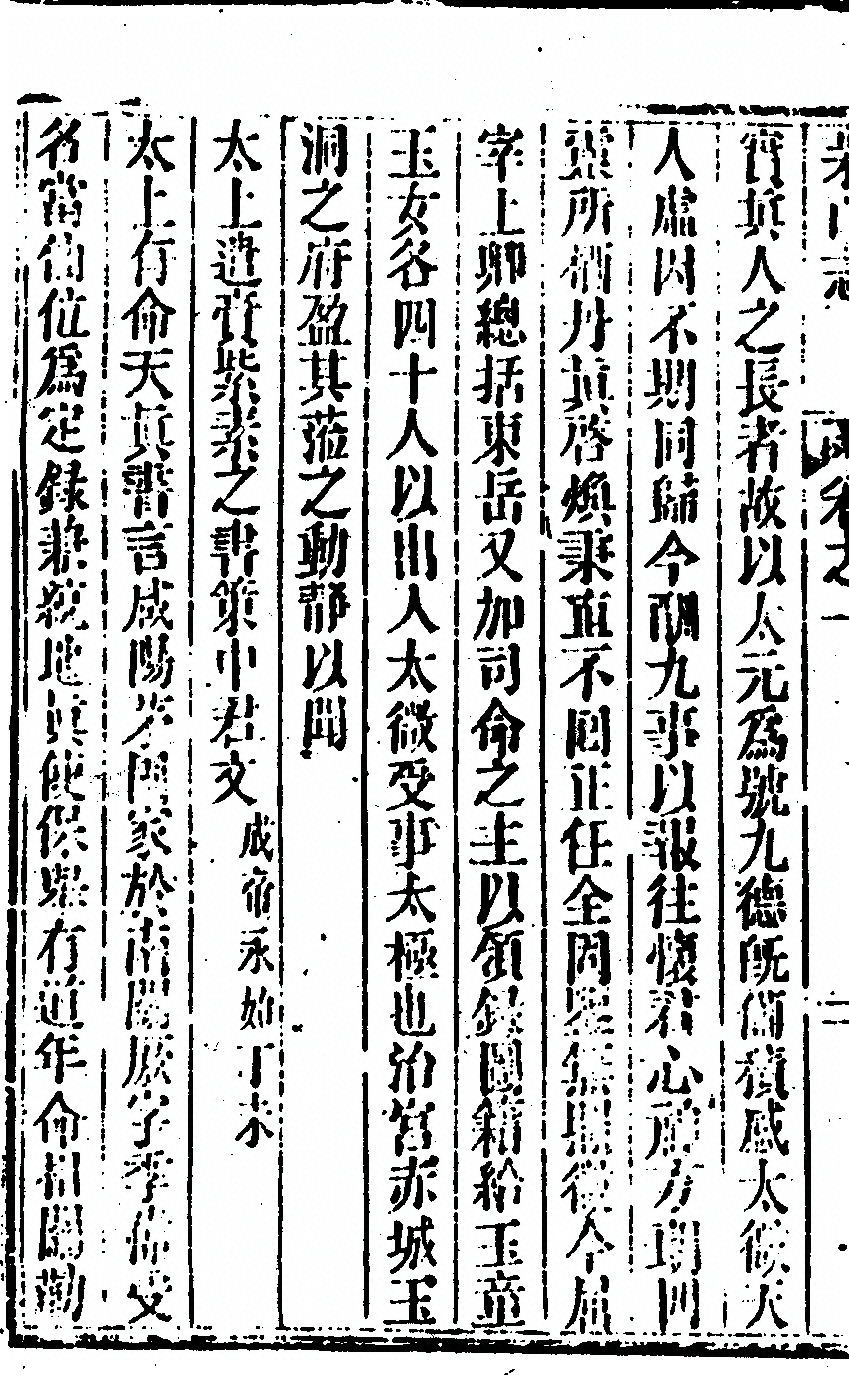 茅山志　卷之一　二
寶真人之長者故以太元為號九德既備積感太微天
人虛因不期同歸今酬九事以報往懷君心所方朗四
靈所栖丹真啓煥秉直不囘正任全固與無退從今屈
宰上卿總括東岳又加司命之主以領錄圖籍給玉童
玉女各四十人以出入太微受事太極也治宮赤城玉
洞之府盈其蒞之動靜以聞
太上遣賫紫素之書策中君文成帝永始丁未
太上有命天真書言咸陽茅固家於南關厥字季偉受
名當仙位為定錄兼統地真使保舉有道年命相關勤